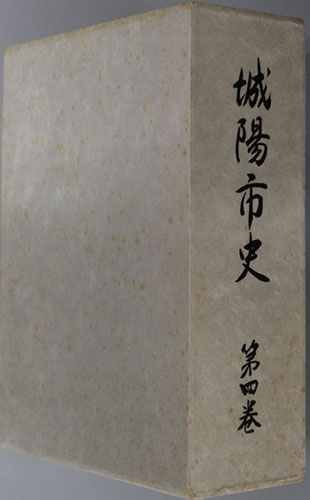 城陽市史
第四巻